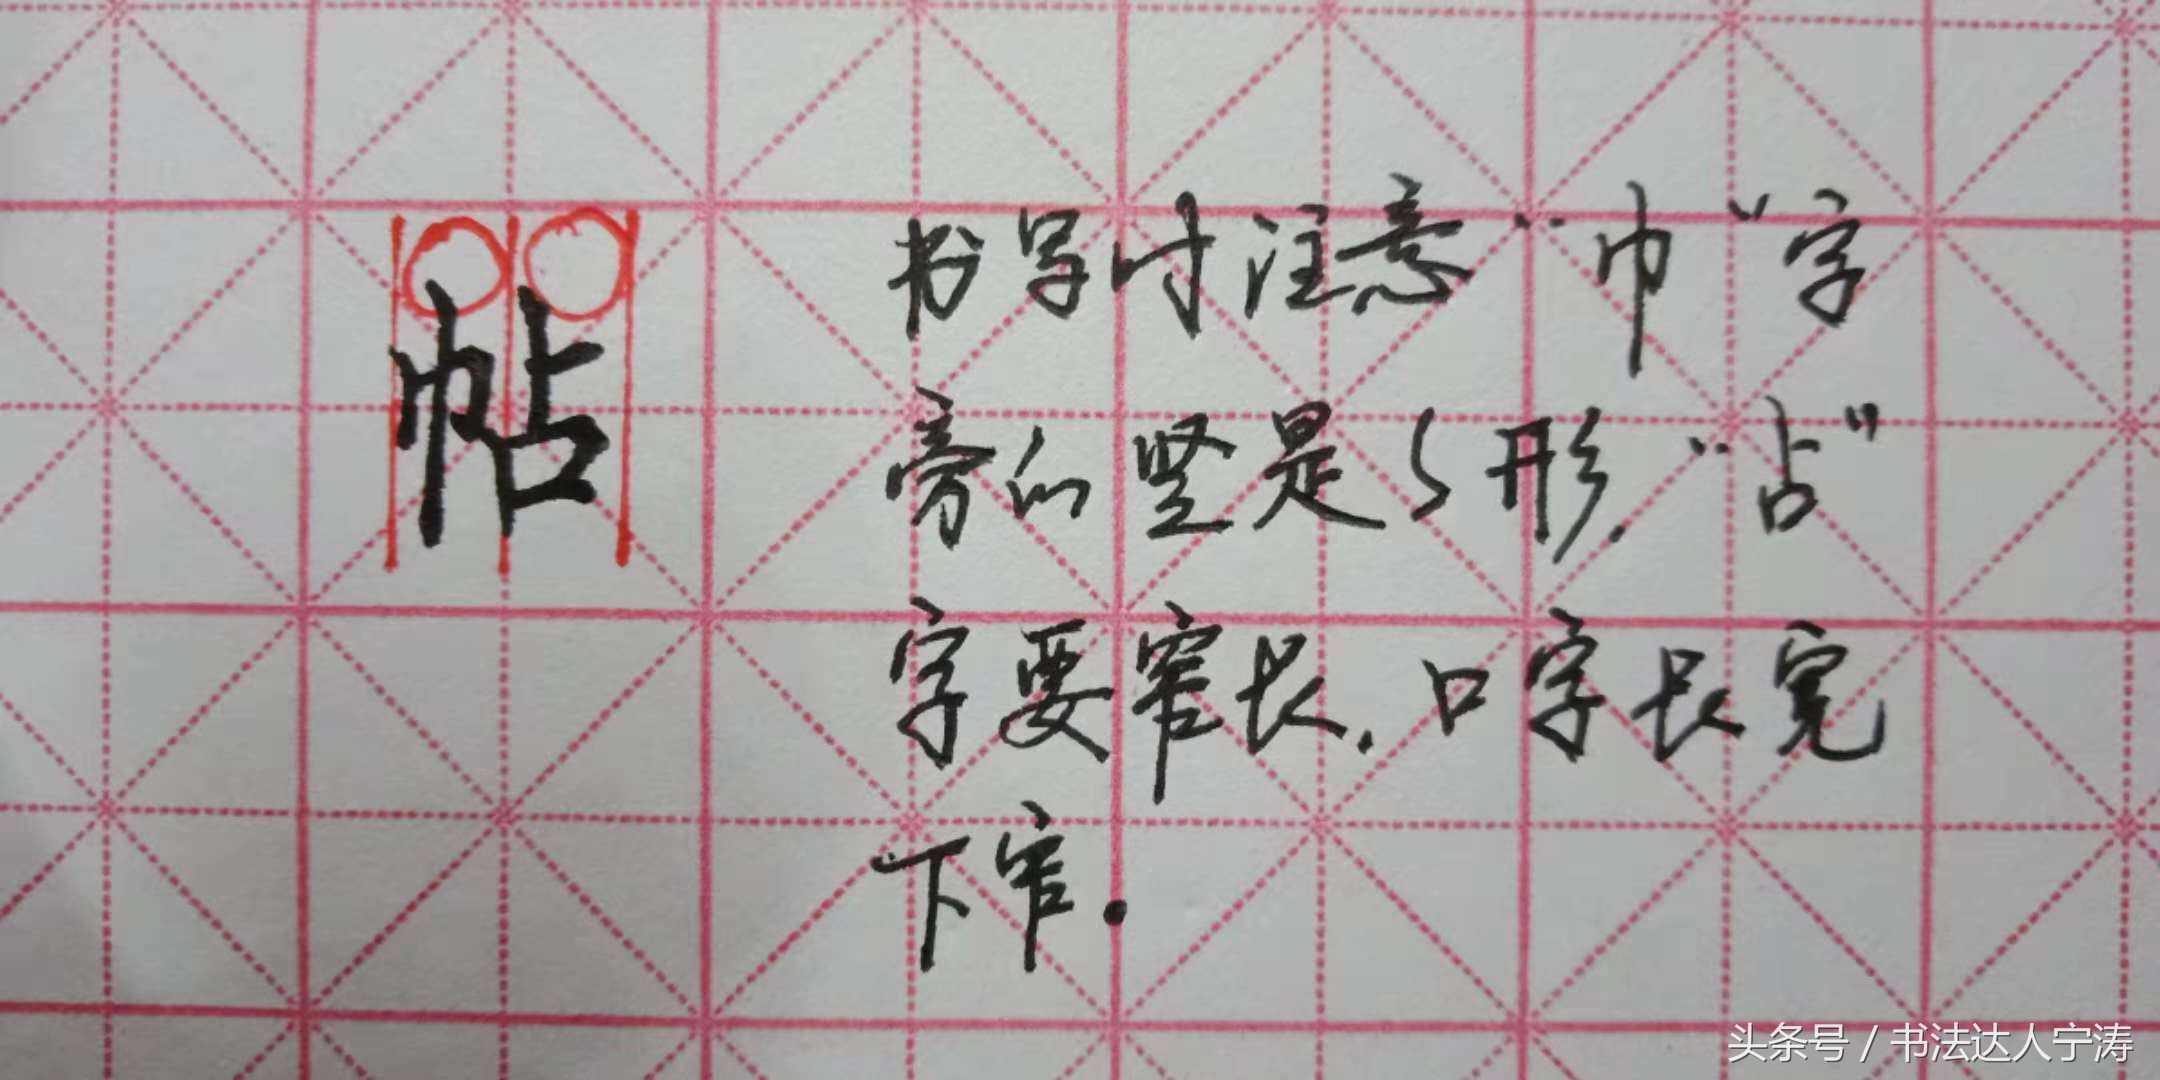 帖
书写时注意“巾”字
旁的竖是S形.“占”
字要窄长.口字长宽
下窄.
头条号 / 书法达人宁涛